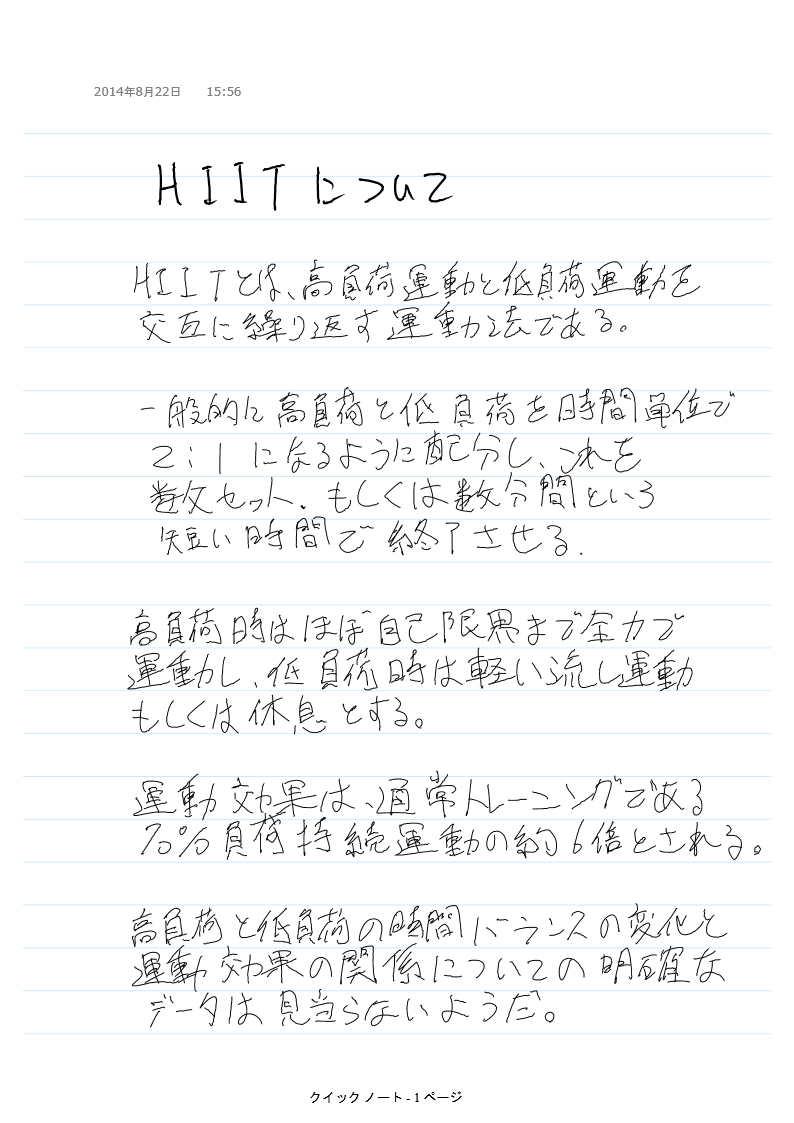 2014年8月22日　15:56
HIITについて
HIITとは、高負荷運動と低負荷運動を
交互に繰り返す運動法である。
一般的に高負荷と低負荷を時間単位で
2:1になるように配分し、これを
数セット、もしくは数分間という
短い時間で終了させる.
高負荷時はほぼ自己限界まで全力で
運動し、低負荷時は軽い流し運動
もしくは休息とする。
運動効果は、通常トレーニングである
70%負荷持続運動の約6倍とされる。
高負荷と低負荷の時間バランスの変化と
運動効果の関係についての明確な
データは見当らないようだ。
クイック ノート - 1 ページ